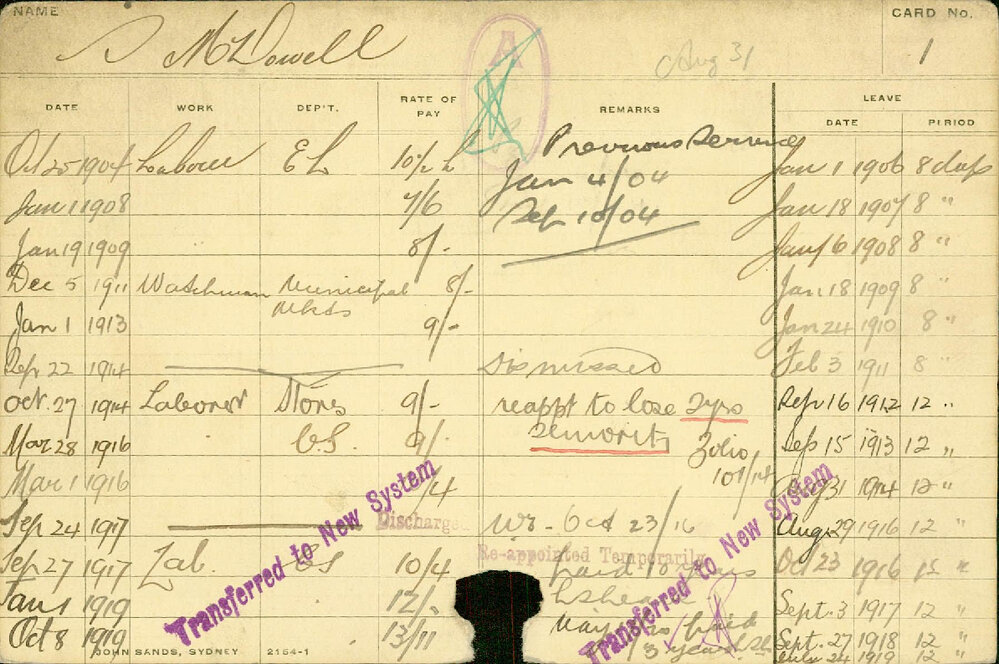 NAME
CARD No.
McDowell
A
Aug 31
1
DATE WORK DEP'T. RATE OF PAY REMARKS LEAVE
DATE PERIOD
Oct 25 1904 Labour E L 10/2 Previous Service Jan 1 1906 8 days
Jan 4/04
Jan 1 1908 7/6 Sep 10/04 Jan 18 1907 8 "
Jan 19 1909 8/- Jan 16 1908 8 "
Dec 5 1911 Watchman Municipal Mkts 8/- Jan 18 1909 8 "
Jan 1 1913 9/- Jan 24 1910 8 "
Sep 22 1914 Dismissed Feb 3 1911 8 "
Oct. 27 1914 Laborer Stores 9/- reappt to lose 2 yrs Sep 16 1912 12 "
Mar 28 1916 C.S. 9/- seniority Folio Sep 15 1913 12 "
101/14
Mar 1 1916 /4 Aug 31 1914 12 "
Sep 24 1917 Discharged Oct 23/16 Aug 29 1916 12 "
Sep 27 1917 Lab. 10/4 Re-appointed Temporarily Oct 23 1916 15 "
Jan 1 1919 12/- Sept. 3 1917 12 "
Oct 8 1919 13/11 3 years Sept. 27 1918 12 "
24 1919 12 "
Transferred to New System
Transferred to New System
JOHN SANDS, SYDNEY 2164-1